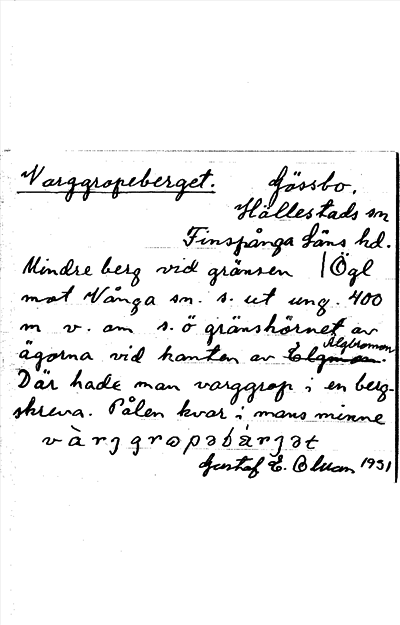 Varggropeberget. Gössbo.
Hällestads sn
Finspånga läns hd.
Mindre berg vid gränsen | Ögl
mot Vånga sn. s. ut ung. 400
m v. om s.ö gränshörnet av
ägorna vid kanten av Älgbromon
Där hade man varggrop i en berg-
skreva. Pålen kvar i mans minne
vàrȷgropəbárȷət
Gustaf E. Bluan 1931